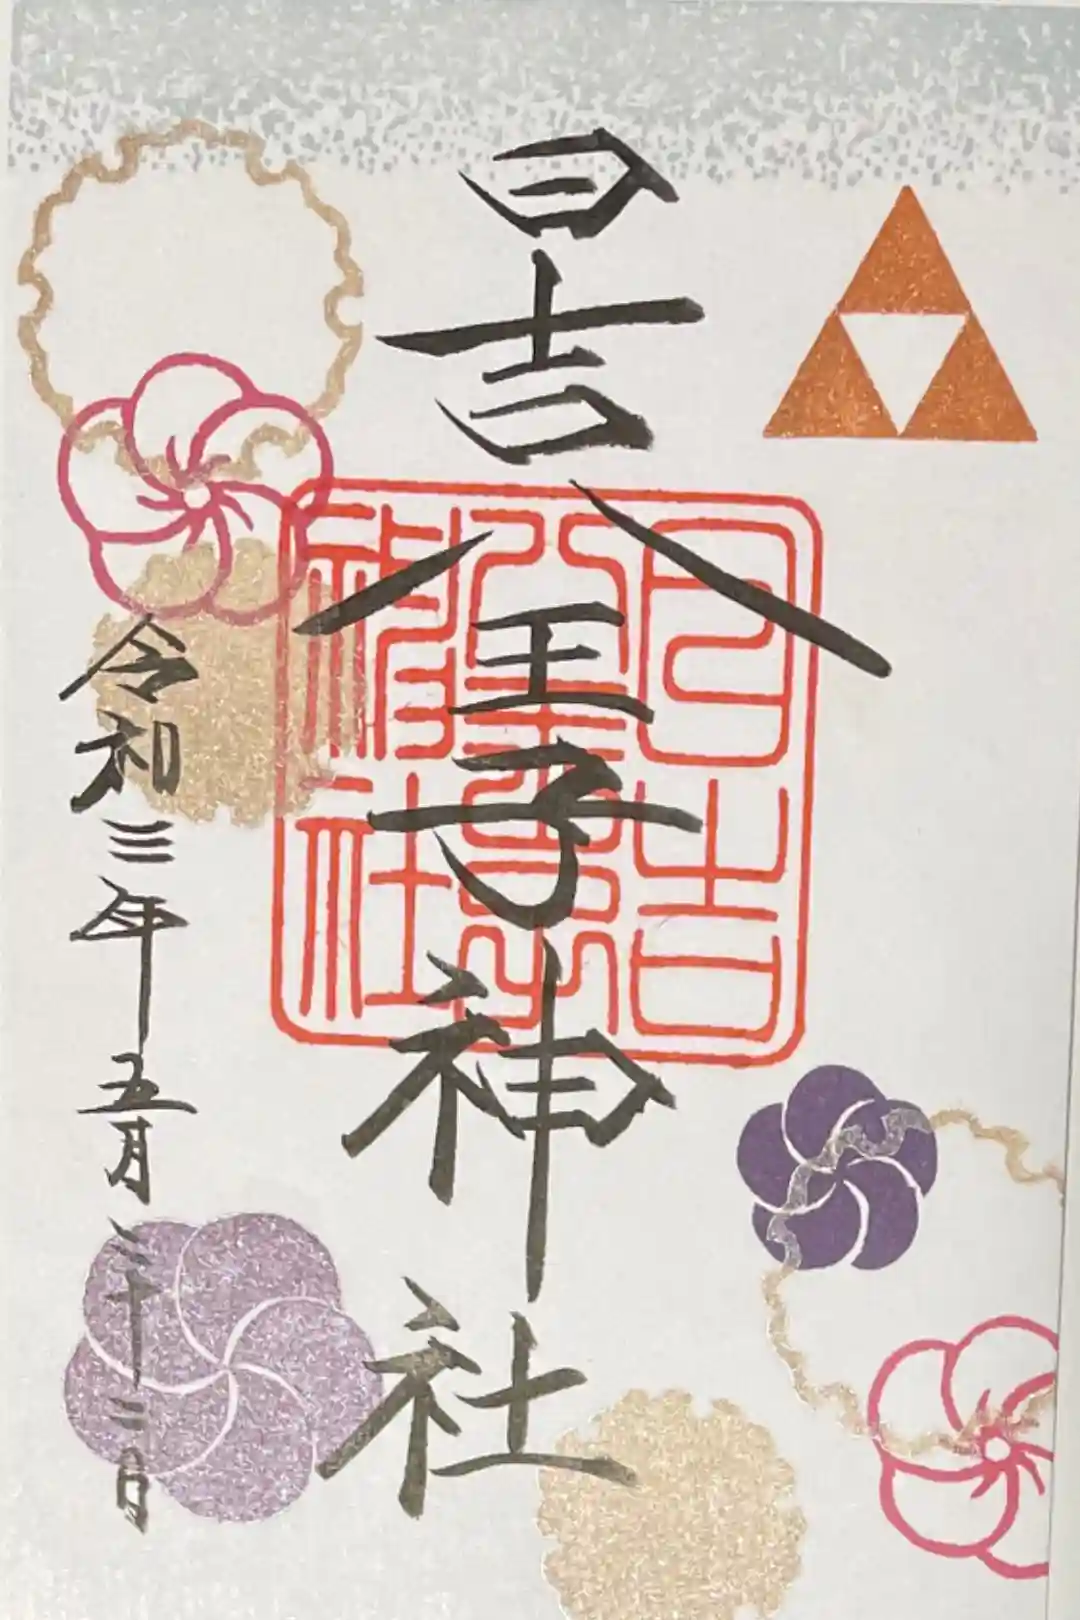 日吉八王子神社
令和三年五月二十二日
日吉
八王子
神社